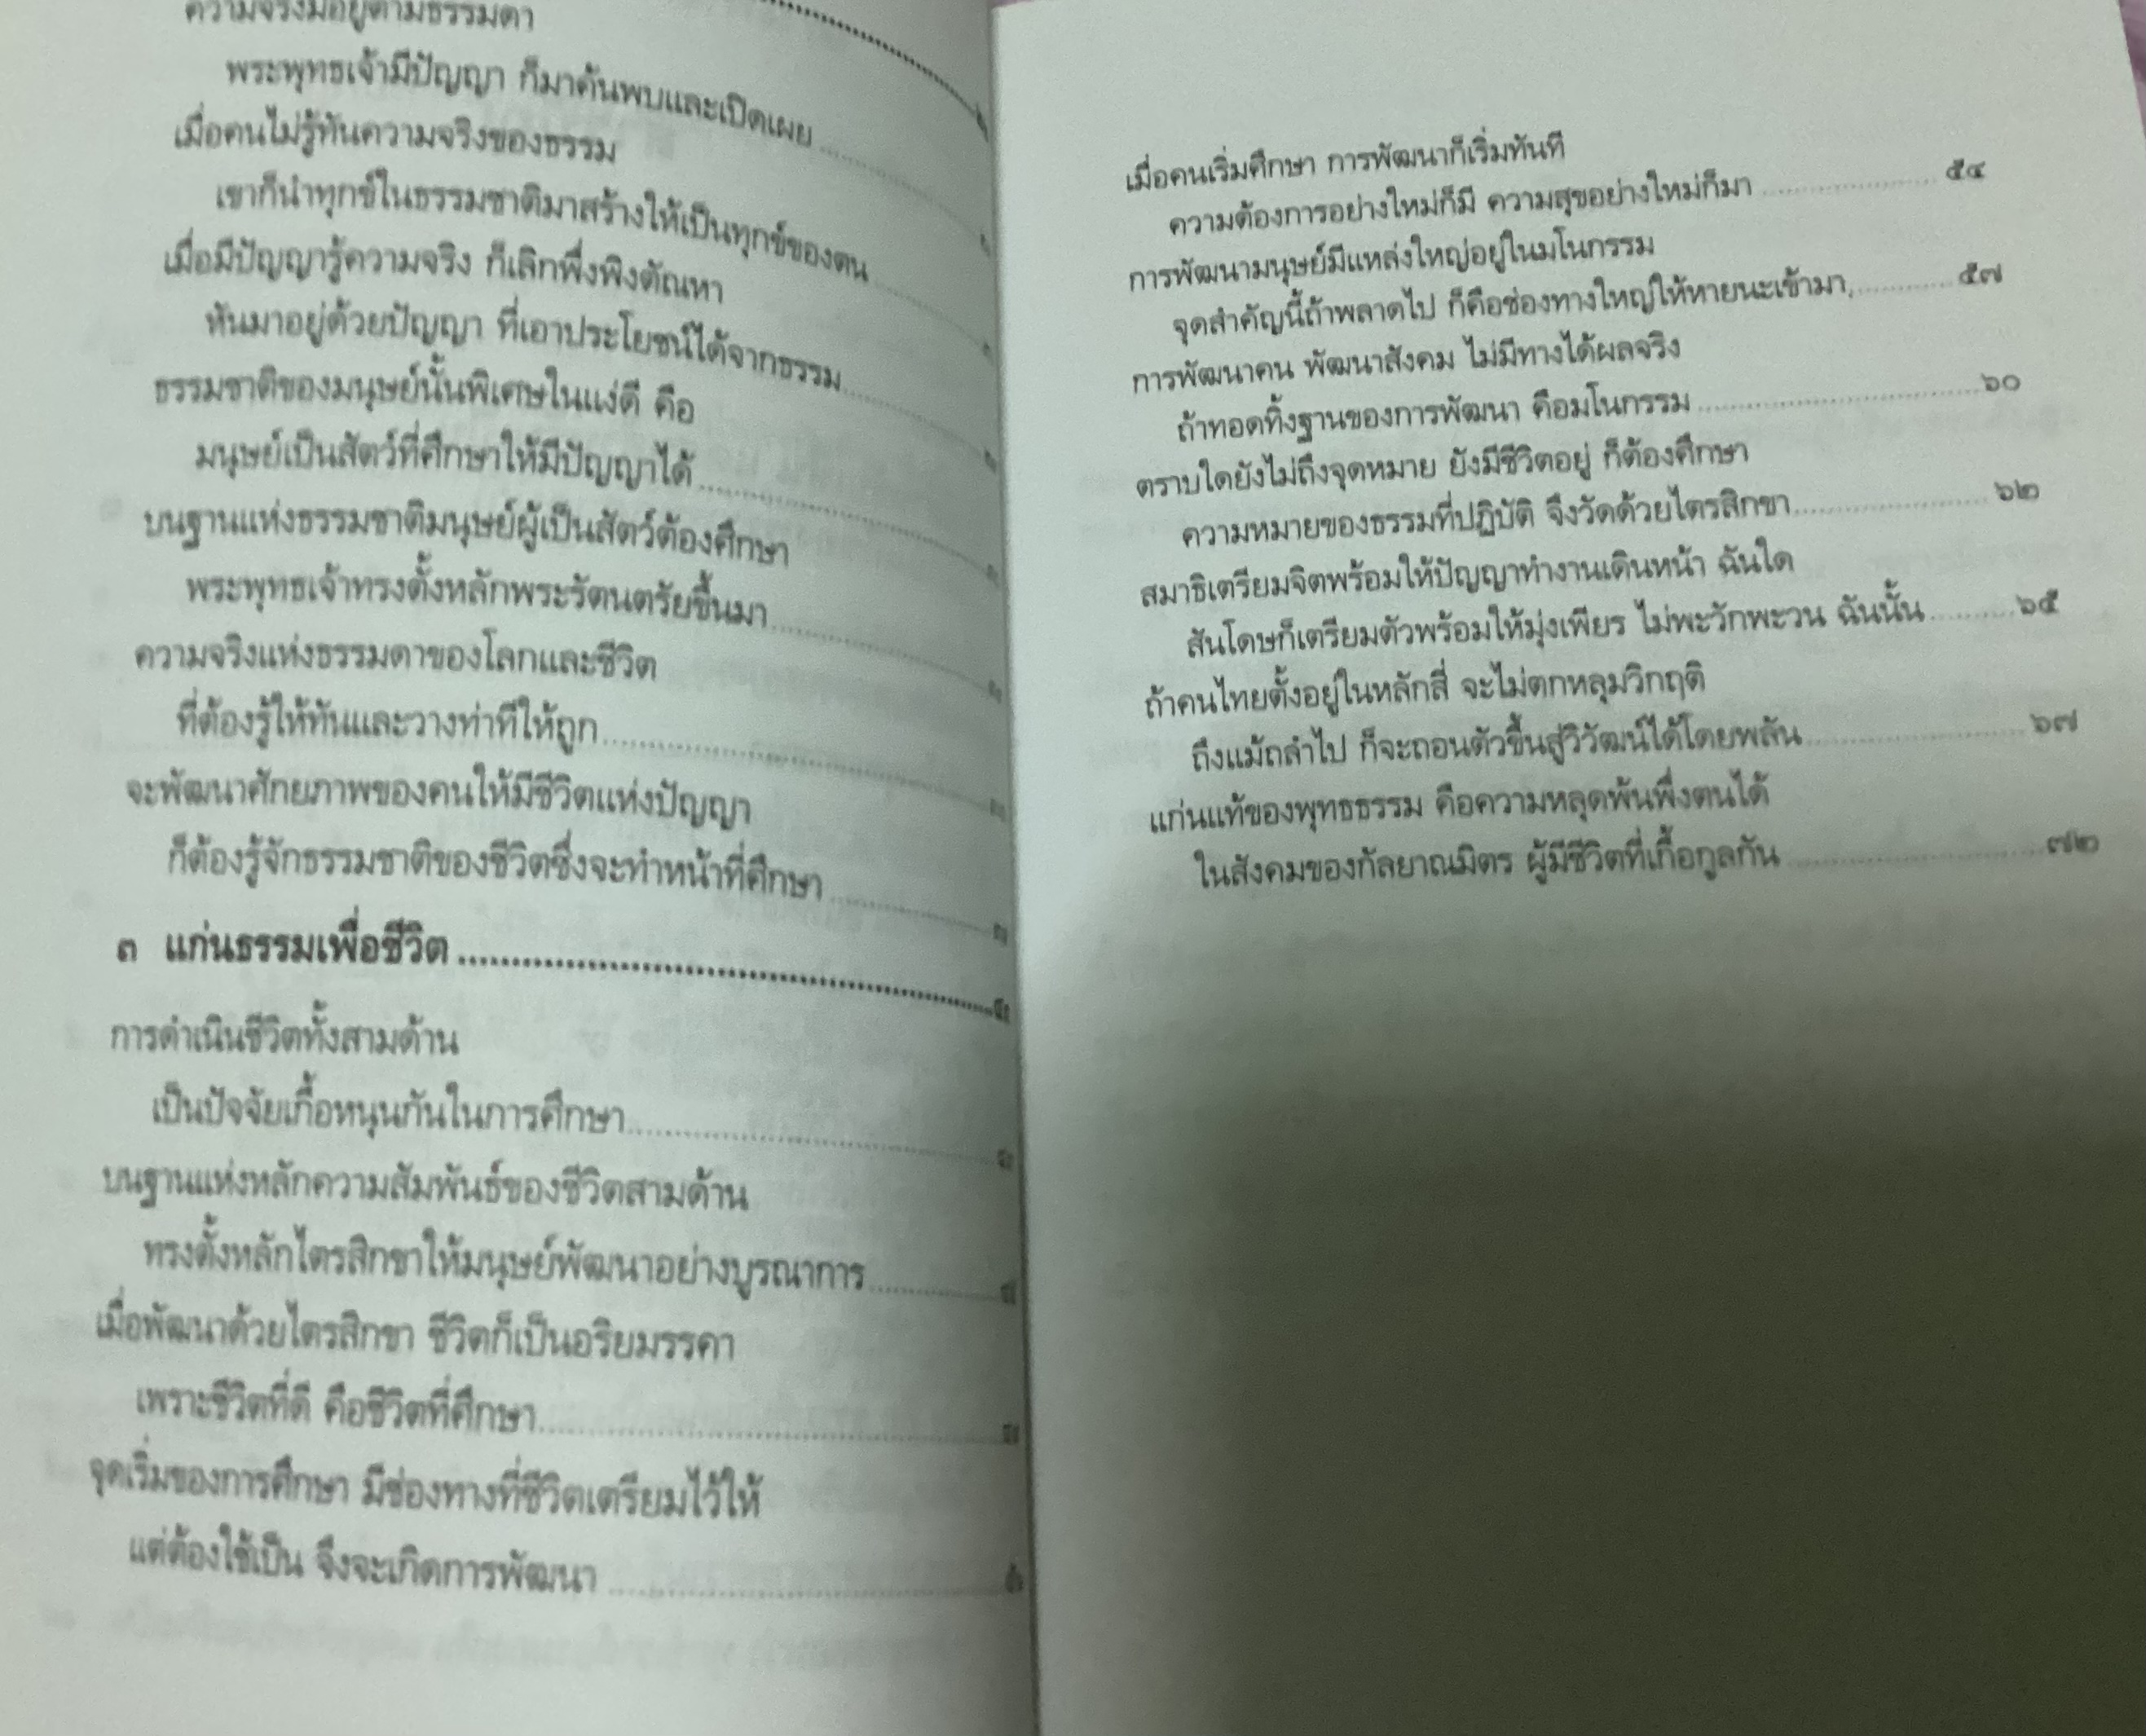 ความจริงมีอยู่ตามธรรมดา
พระพุทธเจ้ามีปัญญา ก็มาค้นพบและเปิดเผย
เมื่อคนไม่รู้ทันความจริงของธรรม
เขาก็นำทุกข์ในธรรมชาติมาสร้างให้เป็นทุกข์ของตน
เมื่อมีปัญญารู้ความจริง ก็เลิกพึ่งพิงตัณหา
หันมาอยู่ด้วยปัญญา ที่เอาประโยชน์ได้จากธรรม
ธรรมชาติของมนุษย์นั้นพิเศษในแง่ดี คือ
มนุษย์เป็นสัตว์ที่ศึกษาให้มีปัญญาได้
บนฐานแห่งธรรมชาติมนุษย์ผู้เป็นสัตว์ต้องศึกษา
พระพุทธเจ้าทรงตั้งหลักพระรัตนตรัยขึ้นมา
ความจริงแห่งธรรมดาของโลกและชีวิต
ที่ต้องรู้ให้ทันและวางท่าทีให้ถูก
จะพัฒนาศักยภาพของคนให้มีชีวิตแห่งปัญญา
ก็ต้องรู้จักธรรมชาติของชีวิตซึ่งจะทำหน้าที่ศึกษา
๓ แก่นธรรมเพื่อชีวิต
การดำเนินชีวิตทั้งสามด้าน
เป็นปัจจัยเกื้อหนุนกันในการศึกษา
บนฐานแห่งหลักความสัมพันธ์ของชีวิตสามด้าน
ทรงตั้งหลักไตรสิกขาให้มนุษย์พัฒนาอย่างบูรณาการ
เมื่อพัฒนาด้วยไตรสิกขา ชีวิตก็เป็นอริยมรรคา
เพราะชีวิตที่ดี คือชีวิตที่ศึกษา
จุดเริ่มของการศึกษา มีช่องทางที่ชีวิตเตรียมไว้ให้
แต่ต้องใช้เป็น จึงจะเกิดการพัฒนา
เมื่อคนเริ่มศึกษา การพัฒนาก็เริ่มทันที
ความต้องการอย่างใหม่ก็มี ความสุขอย่างใหม่ก็มา ๕๔
การพัฒนามนุษย์มีแหล่งใหญ่อยู่ในมโนกรรม
จุดสำคัญนี้ถ้าพลาดไป ก็คือช่องทางใหญ่ให้หายนะเข้ามา ๕๗
การพัฒนาคน พัฒนาสังคม ไม่มีทางได้ผลจริง
ถ้าทอดทิ้งฐานของการพัฒนา คือมโนกรรม ๖๐
ตราบใดยังไม่ถึงจุดหมาย ยังมีชีวิตอยู่ ก็ต้องศึกษา
ความหมายของธรรมที่ปฏิบัติ จึงวัดด้วยไตรสิกขา ๖๒
สมาธิเตรียมจิตพร้อมให้ปัญญาทำงานเดินหน้า ฉันใด
สันโดษก็เตรียมตัวพร้อมให้มุ่งเพียร ไม่พะวักพะวน ฉันนั้น ๖๕
ถ้าคนไทยตั้งอยู่ในหลักสี่ จะไม่ตกหลุมวิกฤติ
ถึงแม้ถลำไป ก็จะถอนตัวขึ้นสู่วิวัฒน์ได้โดยพลัน ๖๗
แก่นแท้ของพุทธธรรม คือความหลุดพ้นพึ่งตนได้
ในสังคมของกัลยาณมิตร ผู้มีชีวิตที่เกื้อกูลกัน ๗๒